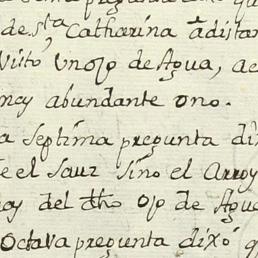 pregunta
de Sta Catharina adistan
Visto un ojo de Agua, ac
muy abundante o no.
a Septima pregunta di
e el Sauz sino el Arroy
ay del dho ojo de Agua
Octava pregunta dixó q